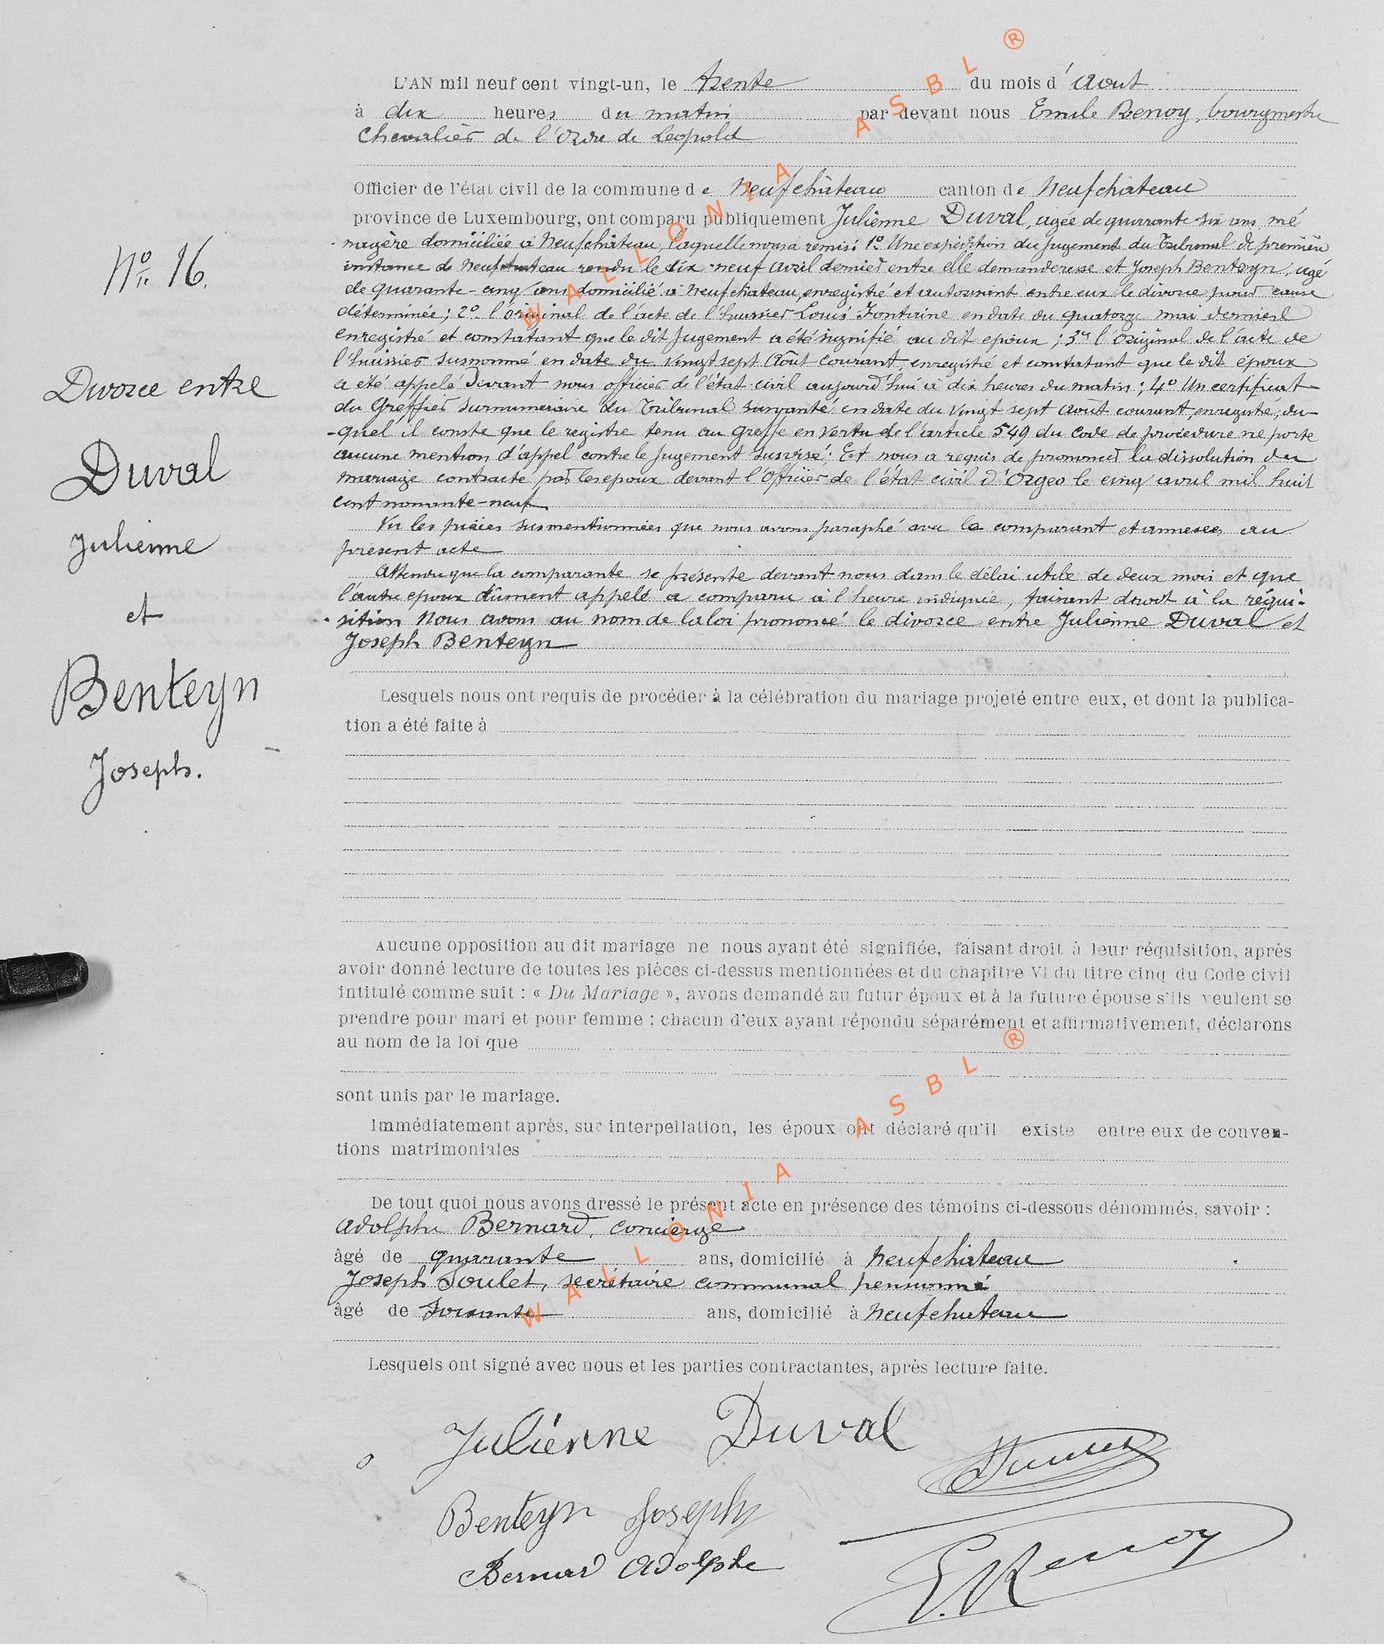 L'AN mil neuf cent vingt-un, le trente du mois d'Aout
à dix heures du matin par devant nous Emile Renoy, bourgmestre
Chevalier de l'Ordre de Leopold
Officier de l'état civil de la commune de Neufchâteau canton de Neufchateau
province de Luxembourg, ont comparu publiquement Julienne Duval, agée de quarante six ans, mé
nagère domiciliée à Neufchâteau, laquelle nous a remis: 1° Une expédition du Jugement du Tribunal de première
instance de Neufchateau rendu le dix-neuf avril dernier entre elle demanderesse et Joseph Benteyn, agé
de quarante-cinq ans domicilié à Neufchateau, enregistré et autorisant entre eux le divorce pour cause
déterminée; 2° l'original de l'acte de l'huissier Louis Fontaine en date du quatorze mai dernier
enregistré et constatant que le dit Jugement a été signifié au dit epoux; 3° l'Original de l'acte de
l'huissier susnommé en date du vingt sept Août courant, enregistré et constatant que le dit époux
a eté appelé devant nous officier de l'état civil aujourd'hui à dix heures du matin; 4° Un certificat
du Greffier Surnumeraire du Tribunal en date du vingt sept Août courant, enregistré, du-
-quel il conste que le registre tenu au greffe en vertu de l'article 549 du Code de procedure ne porte
aucune mention d'appel contre le Jugement susvisé; Et nous a requis de prononcer la dissolution du
mariage contracté par les epoux devant l'Officier de l'état civil d'Orgeo le cinq avril mil huit
cent nonante-neuf
Vu les pièces susmentionnées que nous avons paraphé avec la comparant et annexées au
présent acte
Attendu que la comparante se présente devant nous dans le délai utile de deux mois et que
l'autre epoux dûment appelé a comparu à l'heure indiquée, faisant droit à la réqui-
sition Nous avons au nom de la loi prononcé le divorce entre Julienne Duval et
Joseph Benteyn
N° 16.
Divorce entre
Duval
Julienne
et
Benteyn
Joseph.
Lesquels nous ont requis de procéder à la célébration du mariage projeté entre eux, et dont la publica-
tion a été faite à
Aucune opposition au dit mariage ne nous ayant été signifiée, faisant droit à leur réquisition, après
avoir donné lecture de toutes les pièces ci-dessus mentionnées et du chapitre VI du titre cinq du Code civil
intitulé comme suit : « Du Mariage », avons demandé au futur époux et à la future épouse s'ils veulent se
prendre pour mari et pour femme ; chacun d'eux ayant répondu séparément et affirmativement, déclarons
au nom de la loi que
sont unis par le mariage.
Immédiatement après, sur interpellation, les époux ont déclaré qu'il existe entre eux de conven-
tions matrimoniales
De tout quoi nous avons dressé le présent acte en présence des témoins ci-dessous dénommés, savoir :
Adolphe Bernard, concierge
âgé de quarante ans, domicilié à Neufchateau
Joseph Soulet, secrétaire communal pensionné
âgé de soixante ans, domicilié à Neufchateau
Lesquels ont signé avec nous et les parties contractantes, après lecture faite.
Julienne Duval
Benteyn Joseph
Bernard Adolphe
E. Renoy
WALLONIA ASBL ®
WALLONIA ASBL ®